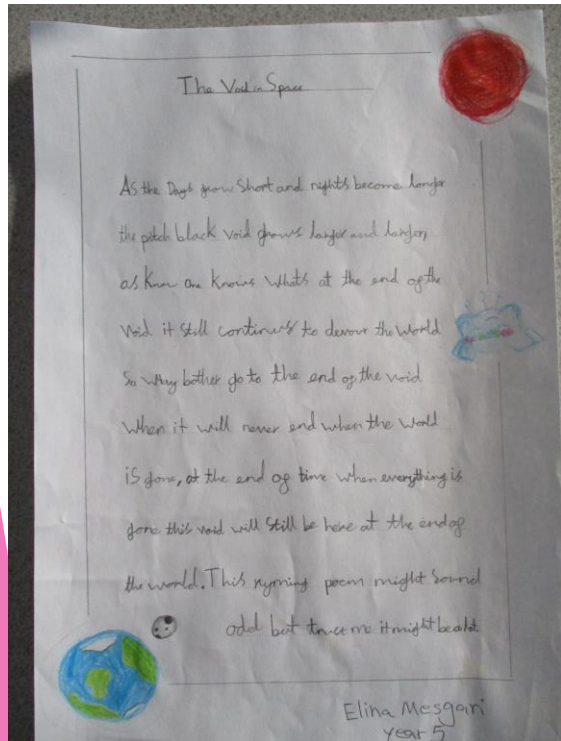 The Void in Space
As the Days grow Short and nights become longer
the pitch black void grows larger and larger,
as know one knows whats at the end of the
void it still continues to devour the world
So why bother go to the end of the void
when it will never end when the world
is gone, at the end of time when everything is
gone this void will still be here at the end of
the world. This ryming poem might sound
odd but trust me it might be a lot
Elina Mesgari
year 5